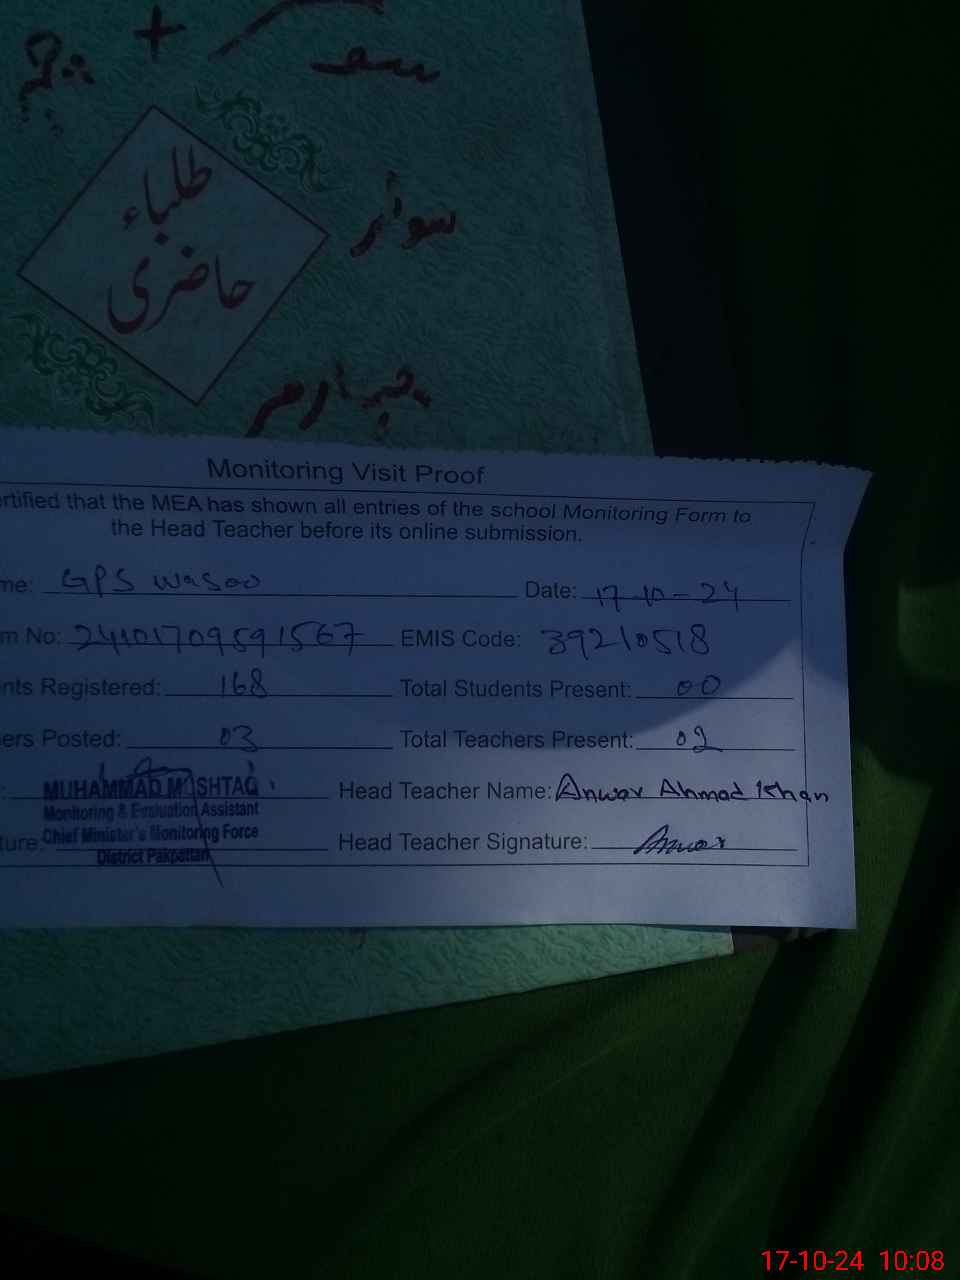 +
سوئم
طلباء
حاضری
چہارم
Monitoring Visit Proof
ertified that the MEA has shown all entries of the school Monitoring Form to
the Head Teacher before its online submission.
me: GPS Wasoo Date: 17-10-24
m No: 24101709591567 EMIS Code: 39210518
nts Registered: 168 Total Students Present: 00
ers Posted: 03 Total Teachers Present: 02
: MUHAMMAD MUSHTAQ Head Teacher Name: Anwar Ahmad Khan
Monitoring & Evaluation Assistant
ture: Chief Minister's Monitoring Force Head Teacher Signature: Anwar
District Pakpattan
17-10-24 10:08